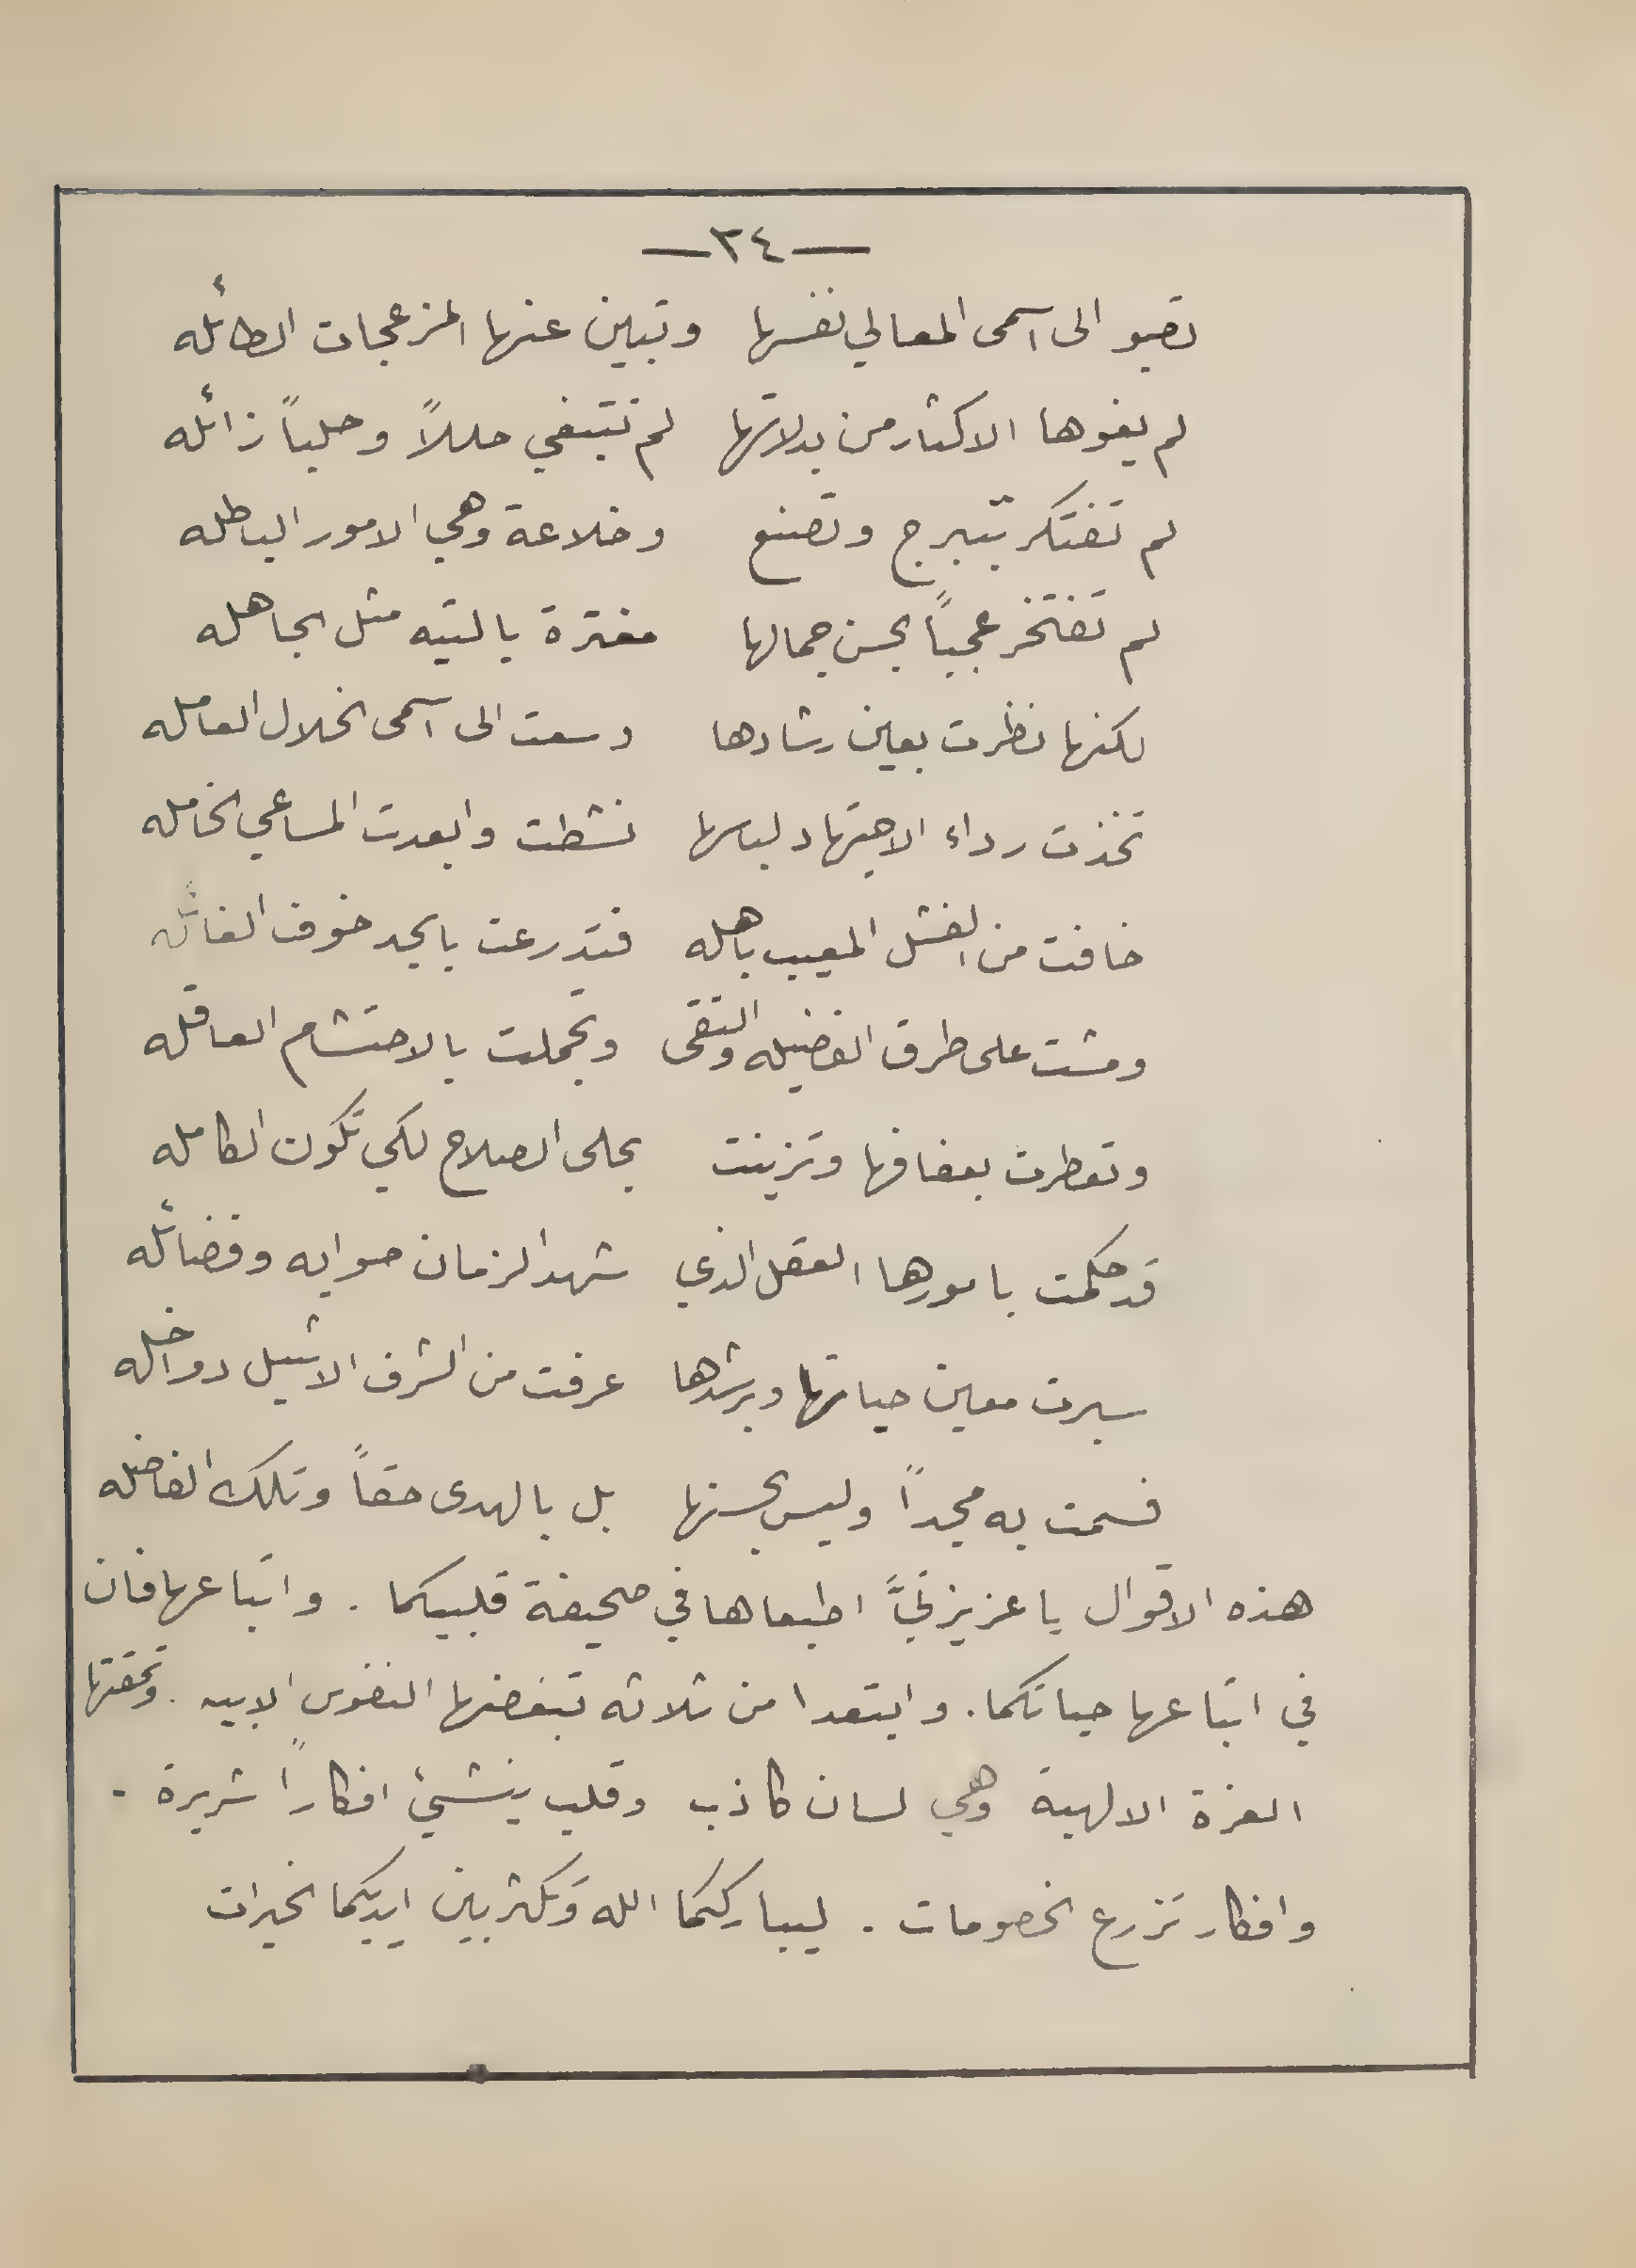 — ٣٤ —
تصبو الى اسمى المعالي نفسها وتبين عنها المزعجات الطائله
لم يغوها الاكثار من بدلاتها لم تبتغي حللاً وحلياً زائله
لم تفتكر بتبرج وتصنع وخلاعة وهي الامور الباطله
لم تفتخر عجباً بحسن جمالها مغترة بالتيه مثل الجاهله
لكنها نظرت بعين رشادها وسعت الى اسمى الخلال العامله
تخذت رداء الاجتهاد لباسها نشطت وابعدت المساعي الخامله
خافت من الفشل المعيب باهله فتدرعت بالجد خوف الغائله
ومشت على طرق الفضيله والتقى وتجملت بالاحتشام العاقله
وتعطرت بعفافها وتزينت بحلى الصلاح لكي تكون الكامله
قد حكمت بامورها العقل الذي شهد الزمان صوابه وفضائله
سبرت معين حياتها وبرشدها عرفت من الشرف الاثيل دواخله
فسمت به مجداً وليس بحسنها بل بالهدى حقاً وتلك الفاضله
هذه الاقوال يا عزيزتيَّ اطبعاها في صحيفة قلبيكما . واتباعها فان
في اتباعها حياتكما . وابتعدا من ثلاثه تبغضها النفوس الابيه . وتمقتها
العزة الالهية وهي لسان كاذب وقلب ينشئ افكاراً شريرة .
وافكار تزرع الخصومات . ليبارككما الله وتكثر بين ايديكما الخيرات